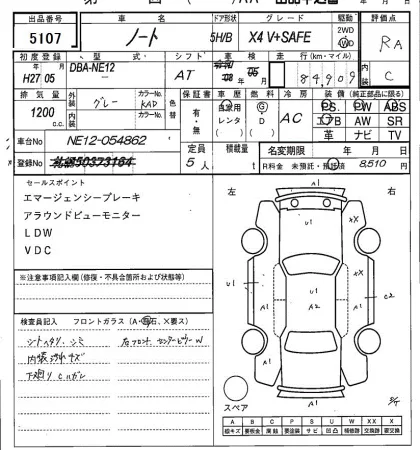 出品番号 車名 ドア形状 グレード 駆動 評価点
5107 ノート 5H/B X4 V+SAFE 2WD WD RA
初度登録 型式 シフト 車検 走行(km・マイル) 内装
H27 05 DBA-NE12 AT 84,909 C
排気量 外装 グレー カラーNo. KAD 色替 保証書 車歴 燃料 冷房 装備(純正部品に限る)
1200 c.c. 内装 カラーNo. 有・無 自家用 レンタ G・D AC PS PW ABS
エアB AW SR
革 ナビ TV
車台No NE12-054862 定員 積載量 名変期限 年 月 日
登録No 5人 t R料金 未預託・預託済 8,510
セールスポイント
エマージェンシーブレーキ
アラウンドビューモニター
LDW
VDC
左 右
A1
U1
U1 A1 A2 A1 C2
A1
※注意事項記入欄(修復・不具合箇所および状態等)
検査員記入 フロントガラス(A・飛石、×要ス)
シートヘタリ、シミ 右フロントセンターピラーW
内装汚れキズ
下廻りCカガレ
スペア
A B C P S U W X XX
線キズ 要板金 腐蝕 要塗装 サビ 凹凸 補修跡 交換跡 要交換